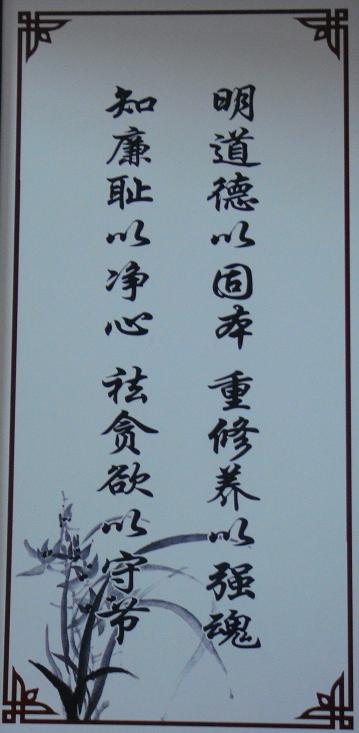 明道德以固本 重修养以强魂
知廉耻以净心 祛贪欲以守节